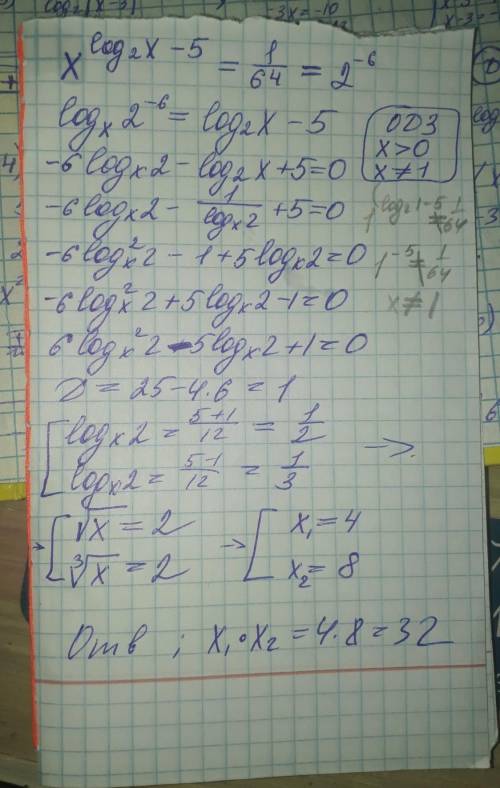 x^(log₂x − 5) = 1/64 = 2⁻⁶
logₓ2⁻⁶ = log₂x − 5
ОДЗ
x>0
x≠1
−6logₓ2 − log₂x + 5 = 0
−6logₓ2 − 1/logₓ2 + 5 = 0
1^(log₂1−5) ≠ 1/64
−6logₓ²2 − 1 + 5logₓ2 = 0
1⁻⁵ ≠ 1/64
−6logₓ²2 + 5logₓ2 − 1 = 0
x ≠ 1
6logₓ²2 − 5logₓ2 + 1 = 0
D = 25 − 4·6 = 1
[ logₓ2 = (5+1)/12 = 1/2
logₓ2 = (5−1)/12 = 1/3 →
→ [ √x = 2 → [ x₁ = 4
∛x = 2 x₂ = 8
Отв ; x₁·x₂ = 4·8 = 32